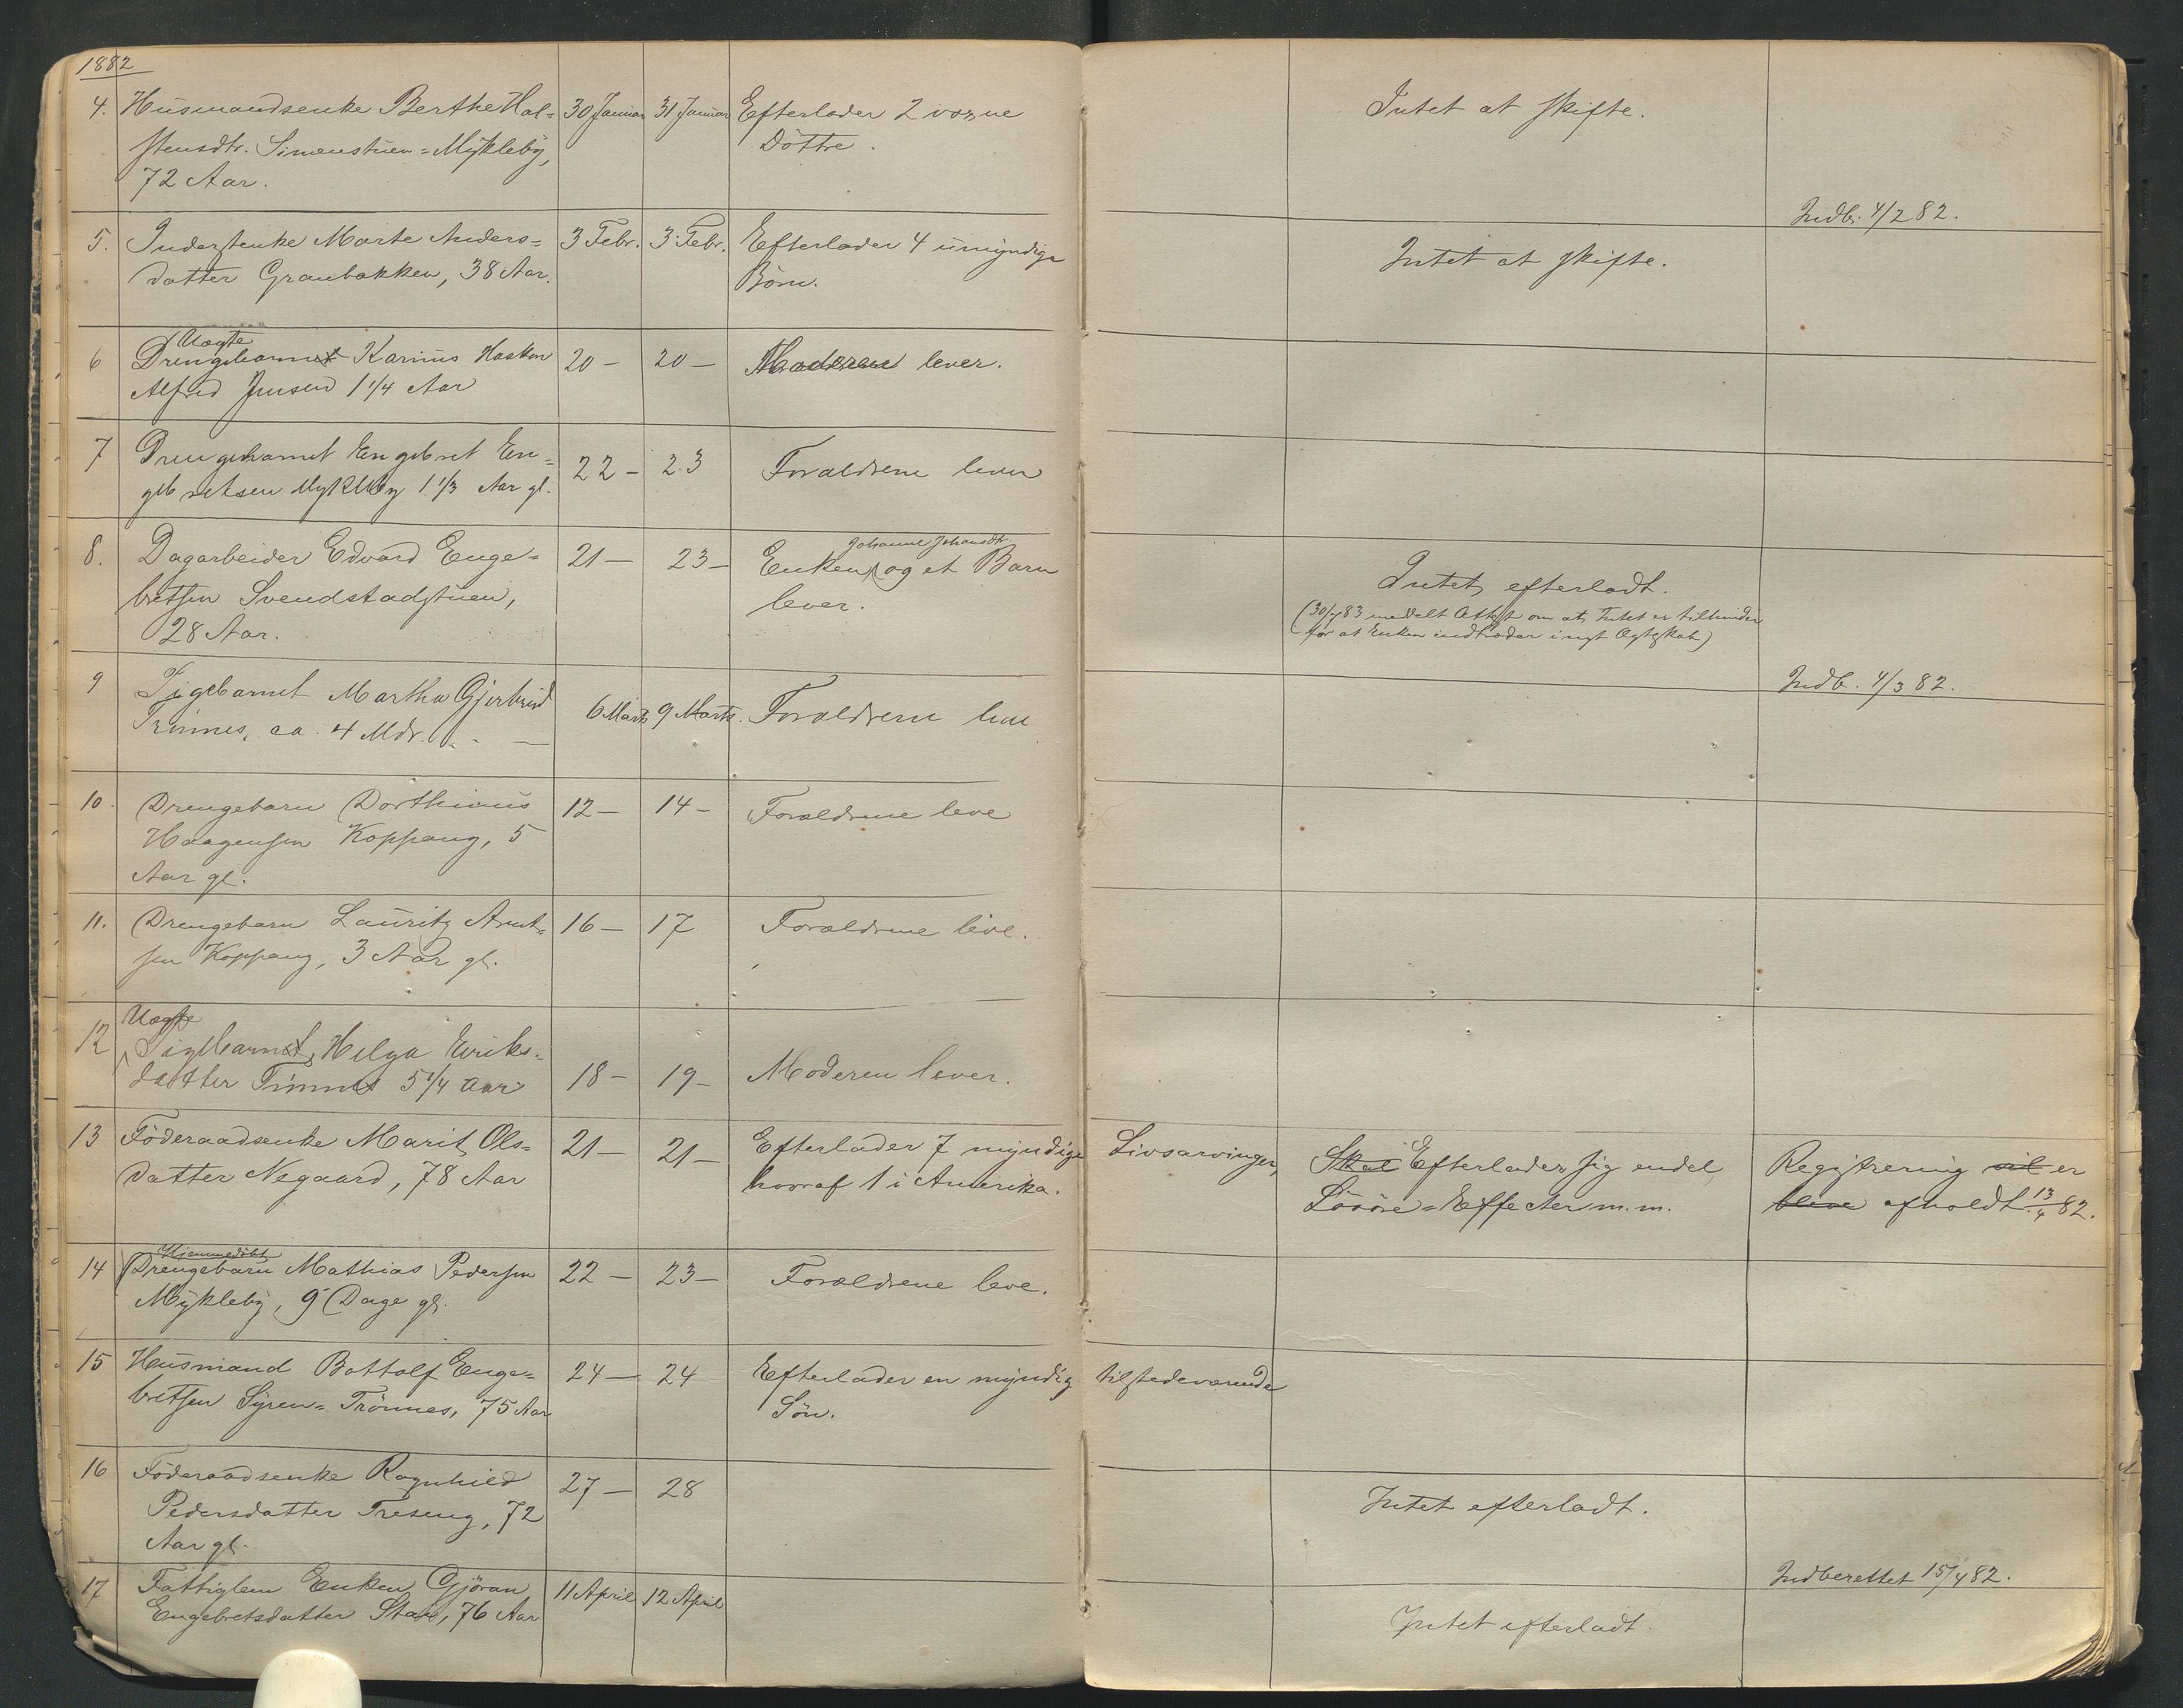 1882
4. Husmandsenke Berthe Hal= 30 Januar 31 Januar Efterlader 2 voxne Intet at skifte.
stensdtr. Simenstuen=Mykleby, Döttre.
72 Aar.
Indb. 4/2 82.
5. Inderstenke Marte Anders= 3 Febr. 3. Febr. Efterlader 4 umyndige Intet at skifte.
datter Granbakken, 38 Aar. Börn.
Uægte
6 Drengebarnet Karinus Haakon 20 — 20 — lever.
Alfred Jensen 1 1/4 Aar
7 Drengebarnet Engebret En= 22 — 23 Forældrene lever
gebretsen Mykleby 1 1/3 Aar gl.
Johanne Johansdtr.
8. Dagarbeider Edvard Enge= 21 — 23 — Enken og et Barn Intet efterladt.
bretsen Svendstadstuen, lever. (30/ 83 meddelt Attest om at Intet er tilhinder
28 Aar. for at Enken indtræder i nyt Ægteskab)
Indb. 4/3 82.
9 Pigebarnet Martha Gjertrud 6 Marts 9 Marts. Forældrene leve
Trönnes, ca. 4 Mdr.
10. Drengebarn Dorthinus 12 — 14 — Forældrene leve
Haagensen Koppang, 5
Aar gl.
11. Drengebarn Lauritz Arnt= 16 — 17 Forældrene leve.
sen Koppang, 3 Aar gl.
Uægte
12 Pigebarnet, Helga Eriks=
datter Trönnes 5 1/4 Aar 18 — 19 — Moderen lever.
13 Föderaadsenke Marit Ols= 21 — 21 — Efterlader 7 myndige Livsarvinger, Skal Efterlader sig endel Registrering vil er
datter Negaard, 78 Aar hvoraf 1 i Amerika. Lösöre=Effecter m.m. blive afholdt 13/4 82.
Hjemmedöbt
14 Drengebarn Mathias Pedersen 22 — 23 — Forældrene leve.
Mykleby, 9 Dage gl.
15 Husmand Bottolf Enge= 24 — 24 Efterlader en myndig tilstedeværende
bretsen Syren=Trönnes, 75 Aar Sön.
16 Föderaadsenke Ragnhild 27 — 28 Intet efterladt.
Pedersdatter Treseng, 72
Aar gl.
Indberettet 15/4 82.
17 Fattiglem Enken Gjöran 11 April 12 April Intet efterladt.
Engebretsdatter Stai, 76 Aar